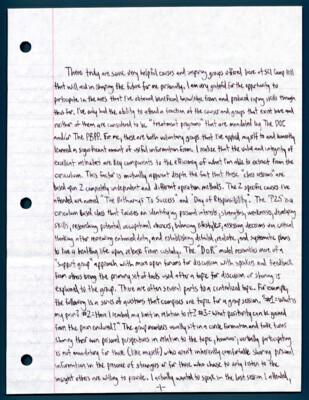 There truly are some very helpful courses and inspiring groups offered here at SCI Camp Hill
that will aid in shaping the future for me personally. I am very grateful for the opportunity to
participate in the ones that I've obtained beneficial knowledge from and produced coping skills through
thus far. I've only had the ability to attend a fraction of the courses and groups that exist here and
neither of them are considered to be "treatment programs" that are mandated by The DOC
and/or The PBPP. For me, these are both voluntary groups that I've applied myself to and honestly
learned a significant amount of useful information from. I notice that the value and integrity of
excellent are key components to the efficiency of what I'm able to extract from the
curriculum. This factor is mutually apparent despite the fact that these "class sessions" are
based upon 2 completely independent and different operation methods. The 2 specific courses I've
attended are named "The Pathways To Success" and "Day of Responsibility". The "P2S" is a
curriculum based class that focuses on identifying present interests, strengths, weaknesses, developing
skills, researching potential occupational choices, balancing lifestyles, assessing decisions via critical
thinking after reviewing entrance data, and establishing detailed, realistic, and systematic plans
to live a healthy life upon release from custody. The "DoR" model resembles more of a
"support group" approach with more open forums for discussion with speakers and feedback
from others being the primary set of tools used after a topic for discussion or sharing is
explained to the group. There are often several parts to a centralized topic. For example,
the following is a series of questions that compose one topic for a group session. "#1= What is
my pain? #2= How I learned my part in relation to it? #3= What positivity can be gained
from the pain endured?" The group members usually sit in a circle formation and take turns
sharing their own personal perspectives in relation to the topic, however, verbally participating
is not mandatory for those (like myself) who aren't inherently comfortable sharing personal
information in the presence of strangers or for those who choose to only listen to the
insight others are willing to provide. I actually wanted to speak in the last session I attended,
-1-